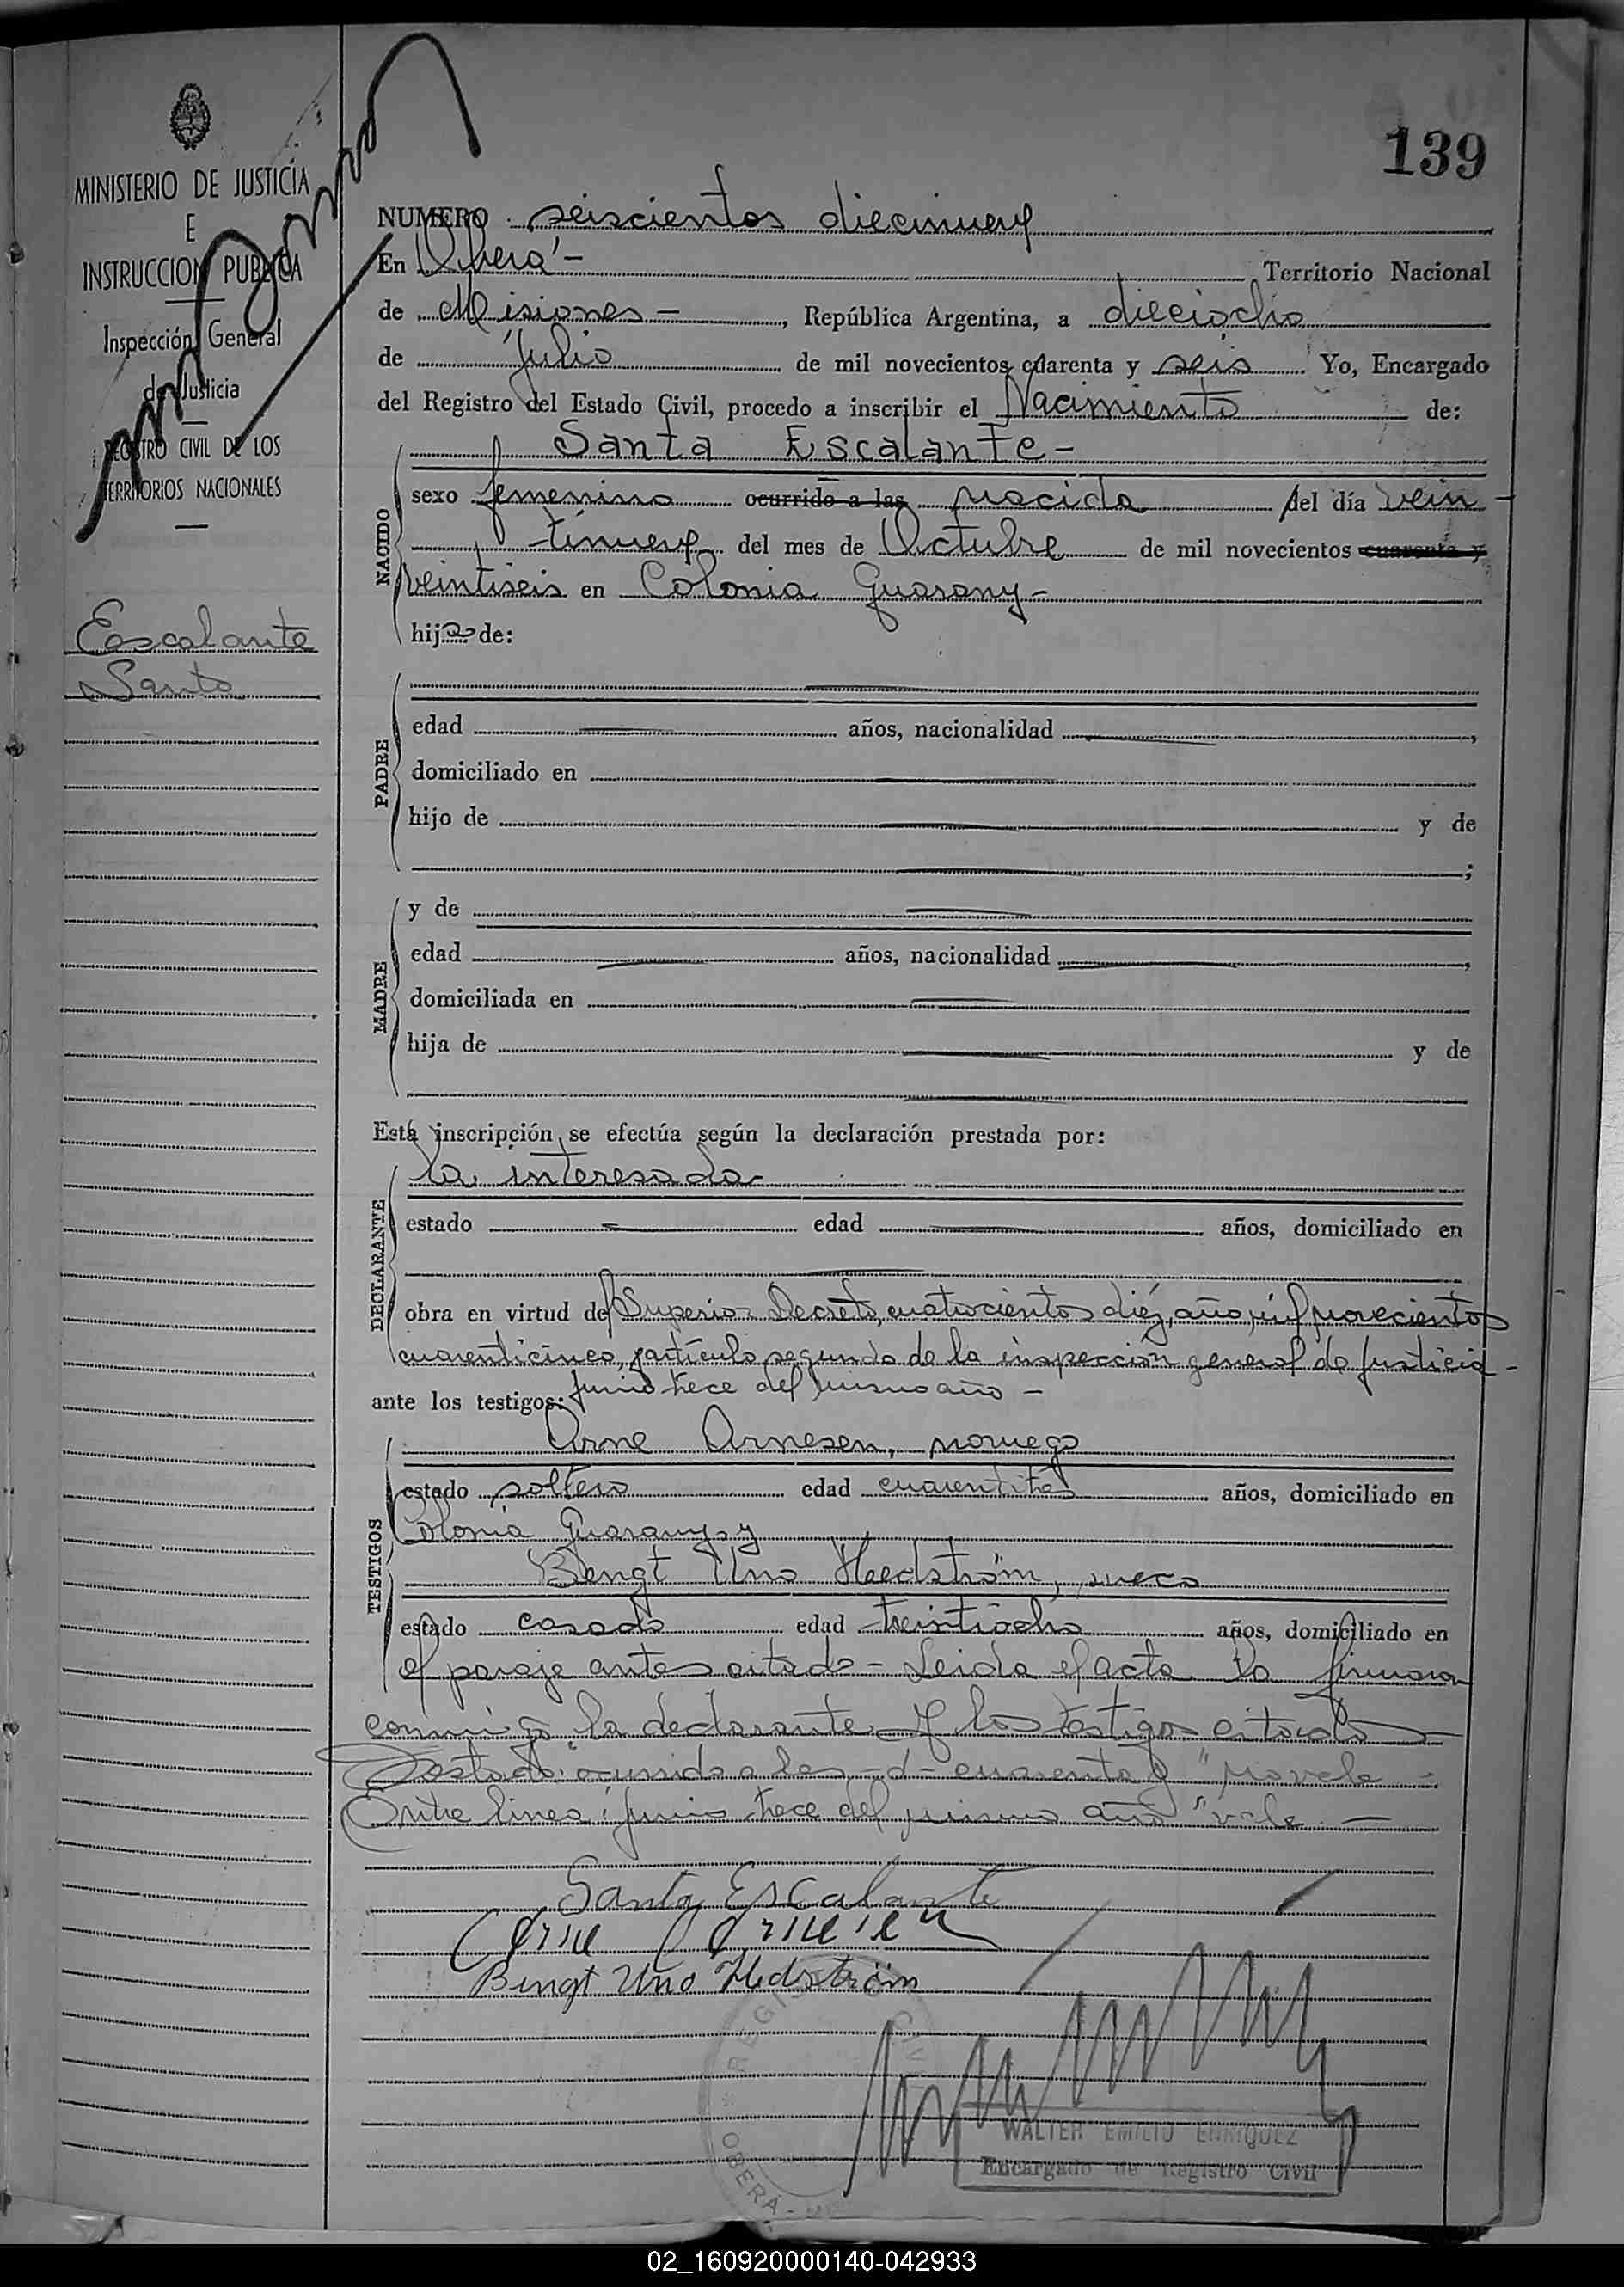 139
MINISTERIO DE JUSTICIA
E
INSTRUCCION PUBLICA
Inspección General
de Justicia
REGISTRO CIVIL DE LOS
TERRITORIOS NACIONALES
Eescalante
Santa
NUMERO seiscientos diecinueve
En Oberá - Territorio Nacional
de Misiones - , República Argentina, a dieciocho
de Julio de mil novecientos cuarenta y seis Yo, Encargado
del Registro del Estado Civil, procedo a inscribir el Nacimiento de:
Santa Escalante -
NACIDO
sexo femenino ocurrido a las nacida del día vein -
tinueve del mes de Octubre de mil novecientos cuarenta y
veintiseis en Colonia Guarany -
hija de:
PADRE
edad años, nacionalidad ,
domiciliado en
hijo de y de
;
MADRE
y de
edad años, nacionalidad ,
domiciliada en
hija de y de
Esta inscripción se efectúa según la declaración prestada por:
DECLARANTE
la interesada
estado edad años, domiciliado en
obra en virtud del Superior Decreto, cuatrocientos diéz, año mil novecientos
cuarenticinco, artículo segundo de la inspección general de justicia -
ante los testigos: junio trece del mismo año -
TESTIGOS
Arne Arnesen, noruego
estado soltero edad cuarentitrés años, domiciliado en
Colonia Guarany, y
Bengt Uno Hedström, sueco
estado casado edad treintiocho años, domiciliado en
el paraje antes citado - Leida el acta la firmaron
conmigo la declarante y los testigos citados
Testado: ocurrido a las -d- cuarenta y " no vale -
Entre linea: junio trece del mismo año " vale. -
Santa Escalante
Arne Arnesen
Bengt Uno Hedström
REGISTRO CIVIL
OBERÁ - M
WALTER EMILIO ENRIQUEZ
Encargado de Registro Civil
02_160920000140-042933